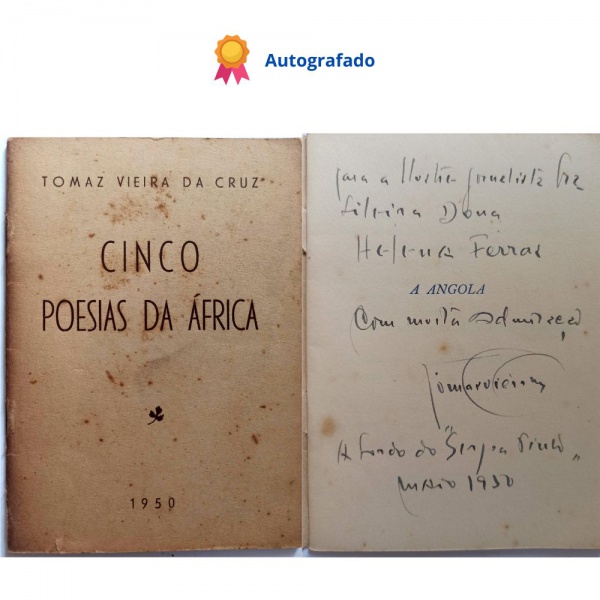 Autografado
TOMAZ VIEIRA DA CRUZ
CINCO
POESIAS DA ÁFRICA
1950
para a Ilustre jornalista
Silveira Dona
Helena Ferraz
A ANGOLA
Com muita Admiração,
Tomazvieira
A bordo do "Serpa Pinto"
maio 1950